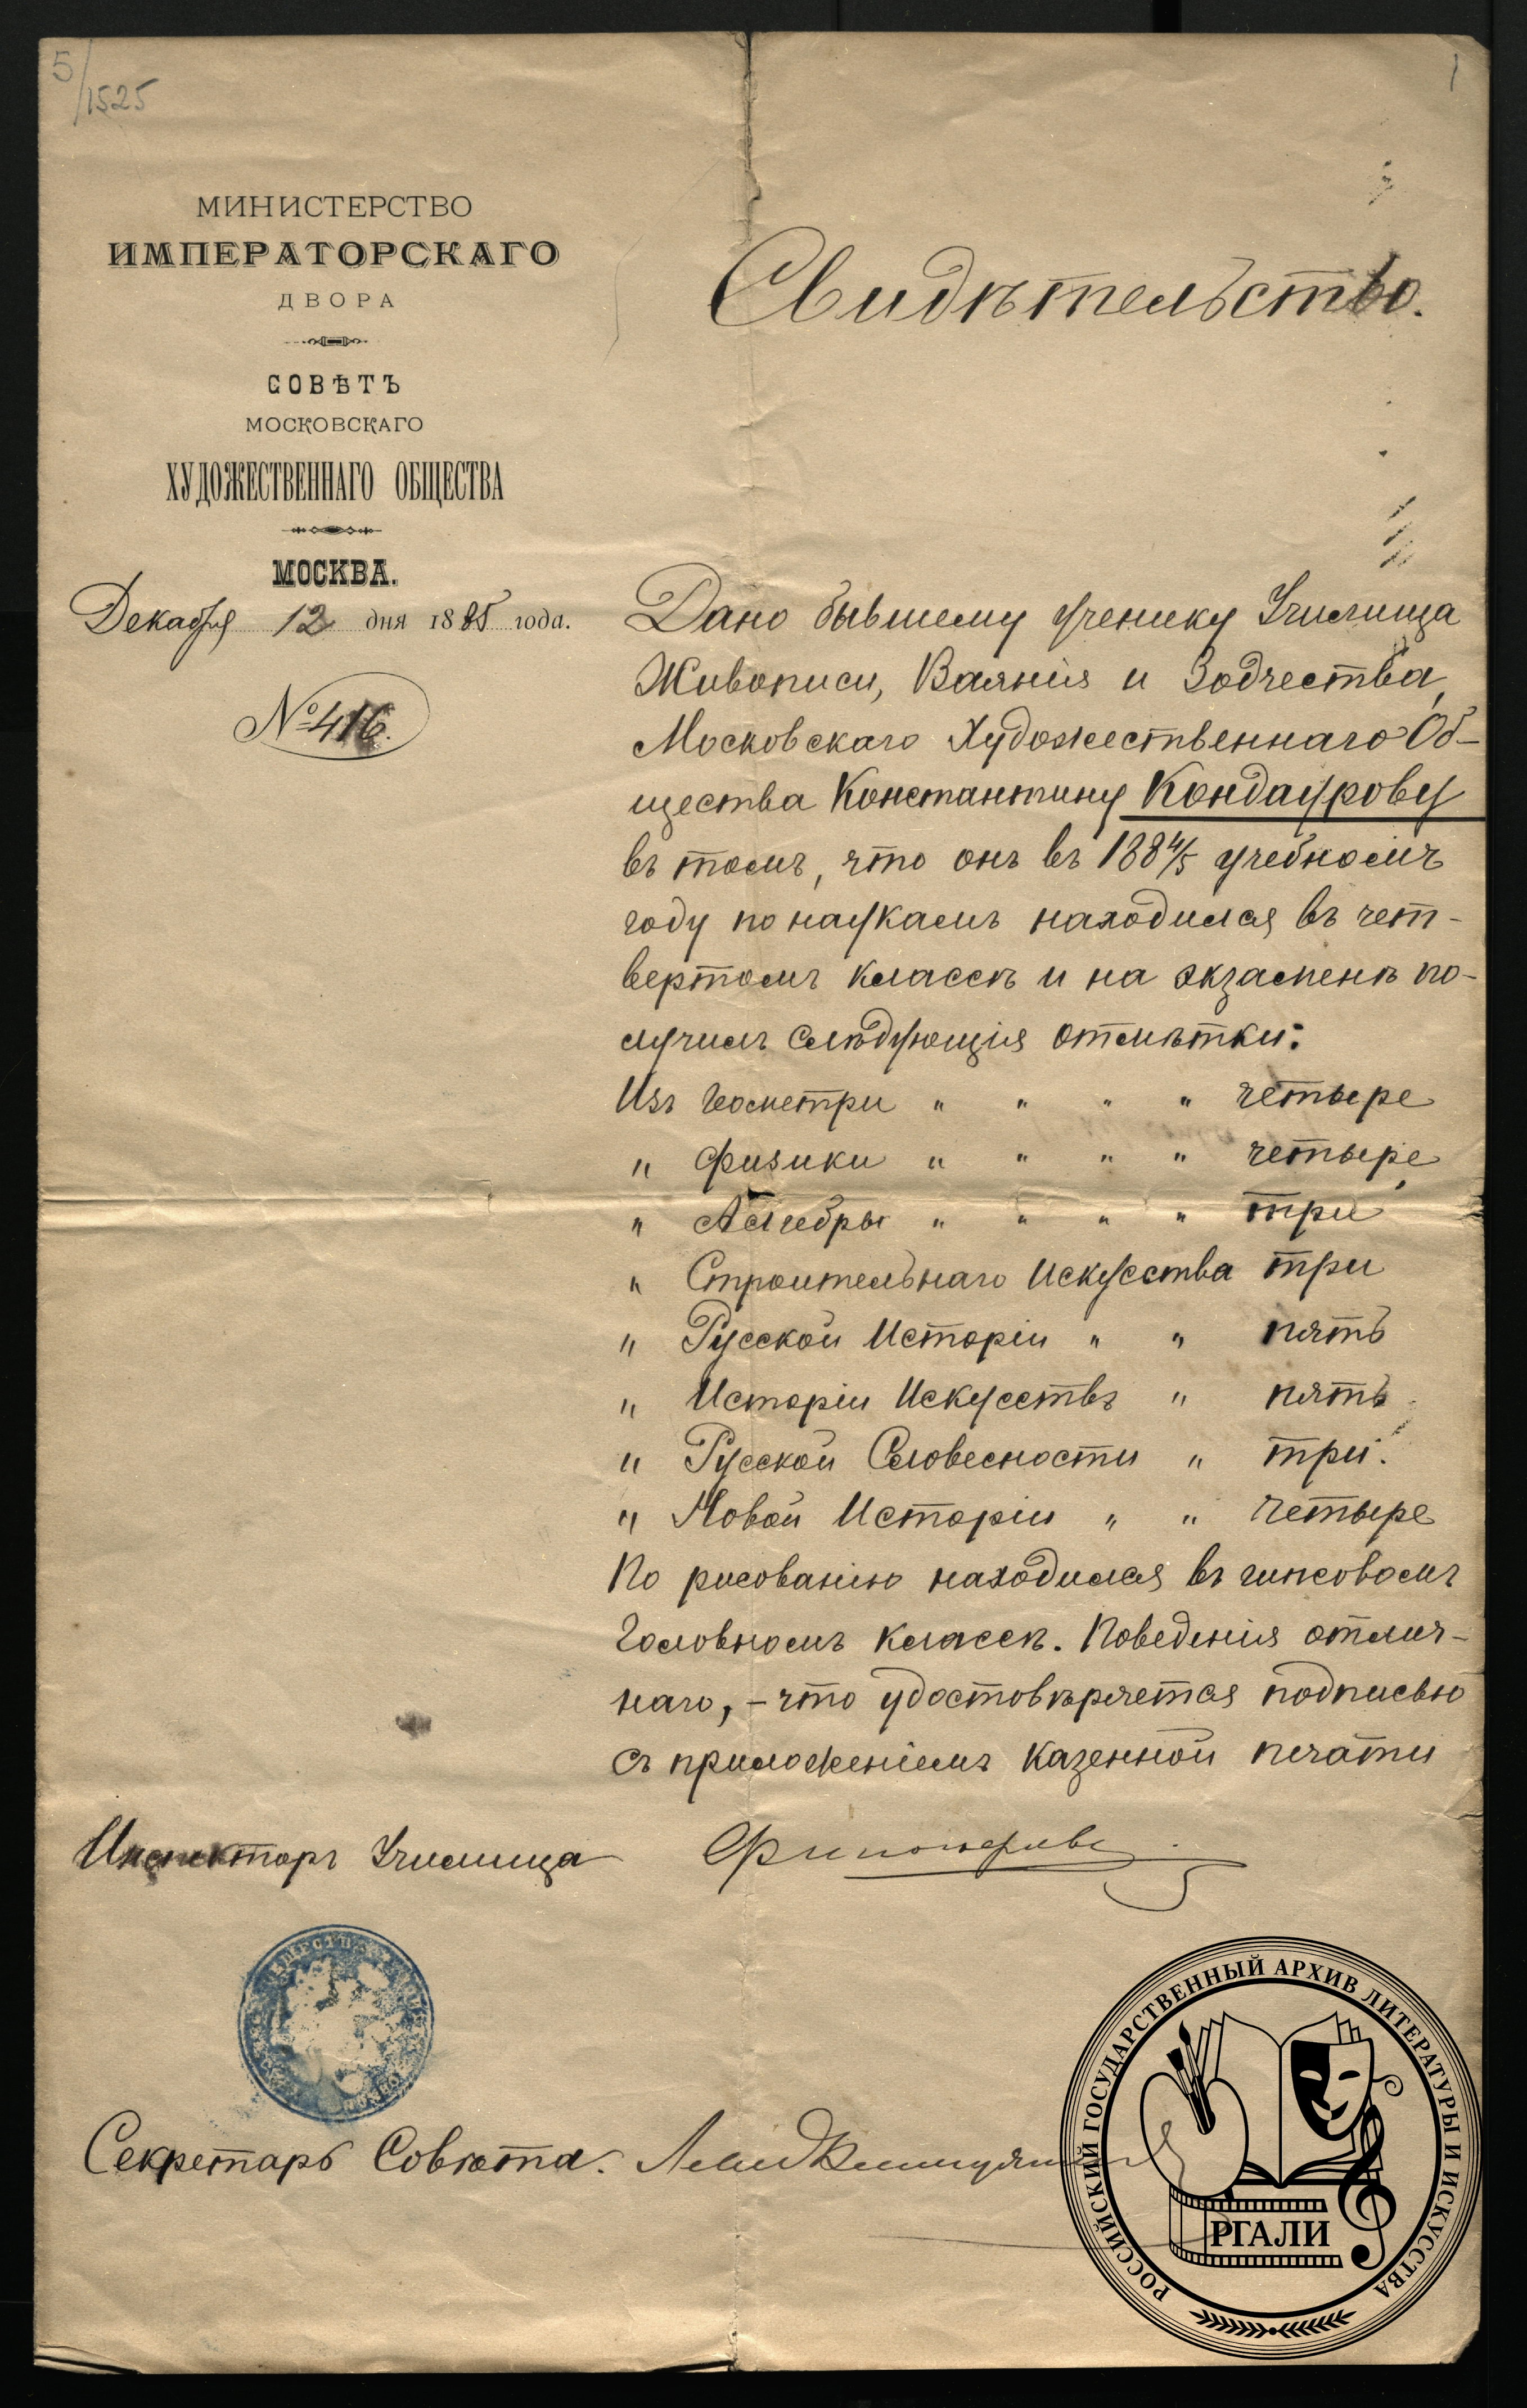 5/1525
1
МИНИСТЕРСТВО
ИМПЕРАТОРСКАГО
ДВОРА
СОВѢТЪ
МОСКОВСКАГО
ХУДОЖЕСТВЕННАГО ОБЩЕСТВА
МОСКВА.
Декабря 12 дня 1885 года.
№ 416.
Свидѣтельство.
Дано бывшему ученику Училища
Живописи, Ваянія и Зодчества,
Московскаго Художественнаго Об-
щества Константину Кондаурову
въ томъ, что онъ въ 1884/5 учебномъ
году по наукамъ находился въ чет-
вертомъ классѣ и на экзаменѣ по-
лучилъ слѣдующія отмѣтки:
Изъ Геометри " " " " четыре
" Физики " " " " четыре
" Алгебры " " " " три
" Строительнаго Искусства три
" Русской Исторіи " " пять
" Исторіи Искусствъ " пять
" Русской Словесности " три.
" Новой Исторіи " " четыре
По рисованію находился въ гипсовомъ
головномъ классѣ. Поведенія отлич-
наго, - что удостовѣряется подписью
съ приложеніемъ казенной печати
Инспекторъ Училища
Секретарь Совѣта.
РОССИЙСКИЙ ГОСУДАРСТВЕННЫЙ АРХИВ ЛИТЕРАТУРЫ И ИСКУССТВА
РГАЛИ